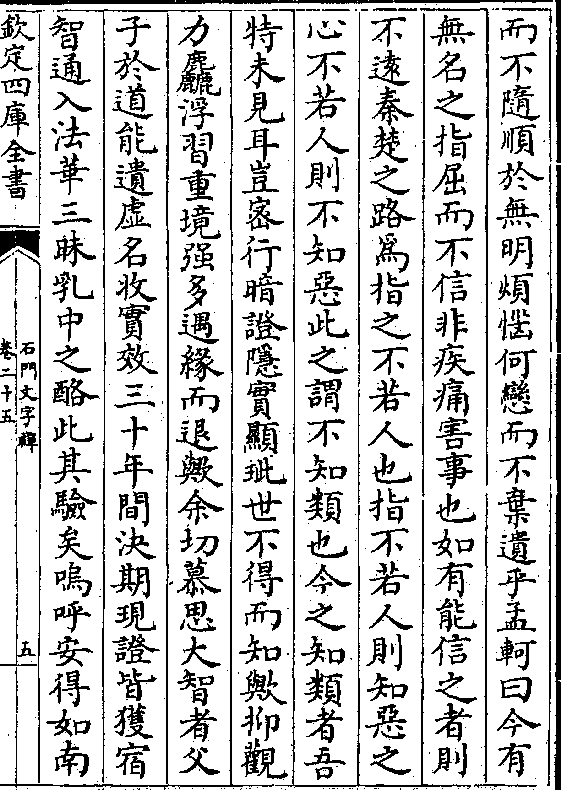 而不隨順於無明煩惱何戀而不棄遺乎孟軻曰今有
無名之指屈而不信非疾痛害事也如有能信之者則
不遠秦楚之路爲指之不若人也指不若人則知惡之
心不若人則不知惡此之謂不知類也今之知類者吾
特未見耳豈宻行暗證隱實顯玼世不得而知歟抑觀
力麤浮習重境强多遇緣而退歟余切慕思大智者父
子於道能遺虛名收實效三十年間決期現證皆獲宿
智通入法華三昧乳中之酪此其驗矣嗚呼安得如南
欽定四庫全書
石門文字禪
卷二十五
五